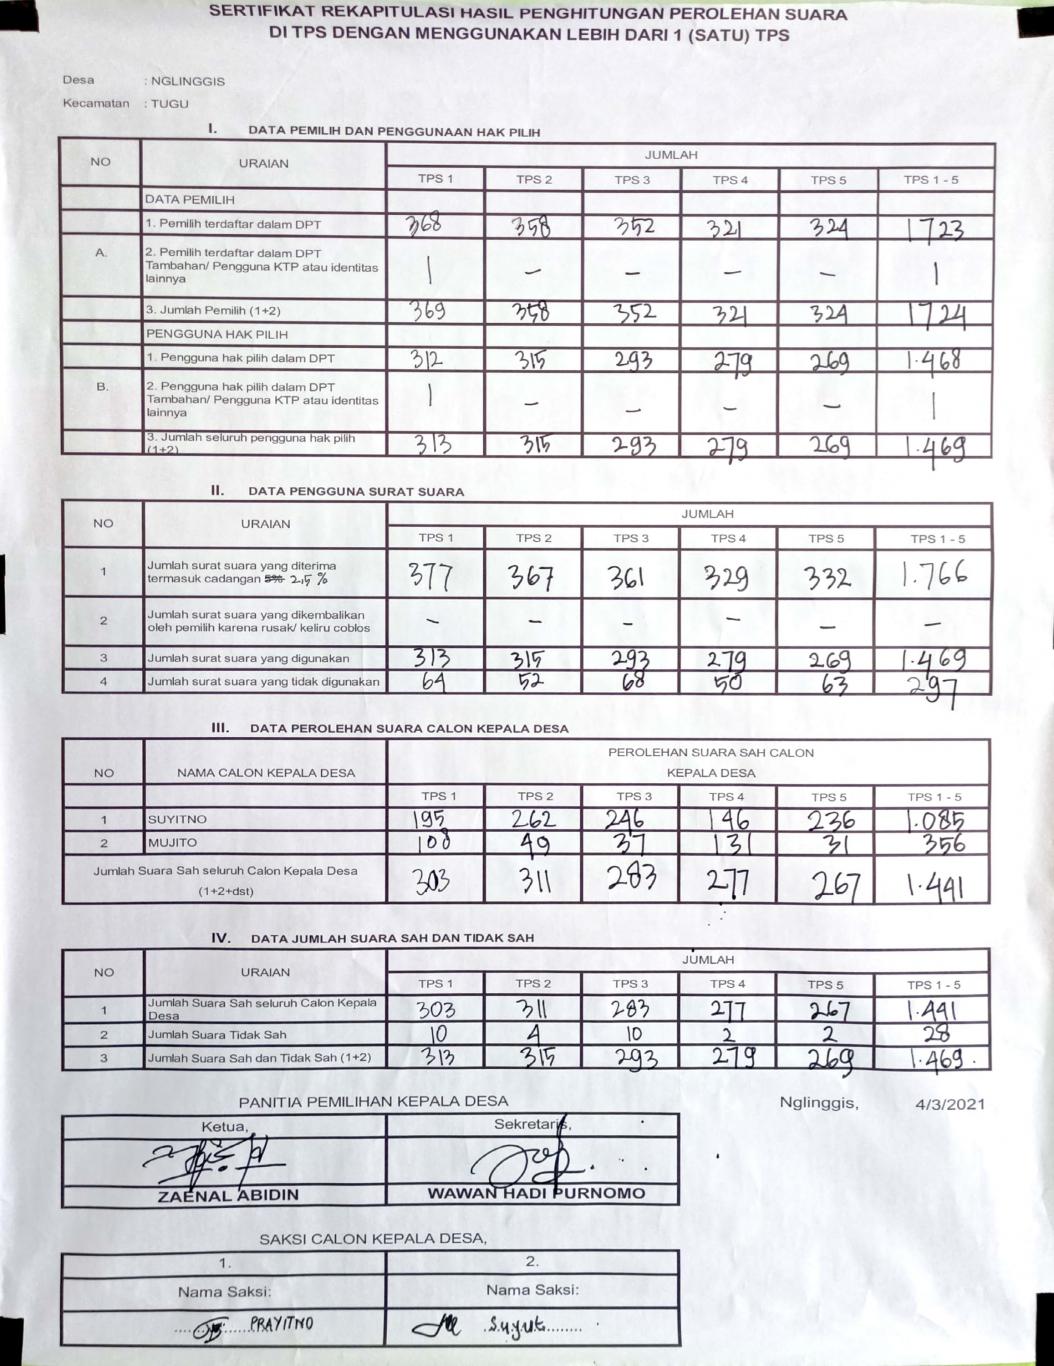 SERTIFIKAT REKAPITULASI HASIL PENGHITUNGAN PEROLEHAN SUARA
DI TPS DENGAN MENGGUNAKAN LEBIH DARI 1 (SATU) TPS
Desa : NGLINGGIS
Kecamatan : TUGU
I. DATA PEMILIH DAN PENGGUNAAN HAK PILIH
NO URAIAN JUMLAH
TPS 1 TPS 2 TPS 3 TPS 4 TPS 5 TPS 1 - 5
DATA PEMILIH
1. Pemilih terdaftar dalam DPT 368 358 352 321 324 1723
A. 2. Pemilih terdaftar dalam DPT
Tambahan/ Pengguna KTP atau identitas 1 – – – – 1
lainnya
3. Jumlah Pemilih (1+2) 369 358 352 321 324 1724
PENGGUNA HAK PILIH
1. Pengguna hak pilih dalam DPT 312 315 293 279 269 1.468
B. 2. Pengguna hak pilih dalam DPT
Tambahan/ Pengguna KTP atau identitas 1 – – – – 1
lainnya
3. Jumlah seluruh pengguna hak pilih 313 315 293 279 269 1.469
(1+2)
II. DATA PENGGUNA SURAT SUARA
NO URAIAN JUMLAH
TPS 1 TPS 2 TPS 3 TPS 4 TPS 5 TPS 1 - 5
1 Jumlah surat suara yang diterima
termasuk cadangan 5% 2,5 % 377 367 361 329 332 1.766
2 Jumlah surat suara yang dikembalikan
oleh pemilih karena rusak/ keliru coblos – – – – – –
3 Jumlah surat suara yang digunakan 313 315 293 279 269 1.469
4 Jumlah surat suara yang tidak digunakan 64 52 68 50 63 297
III. DATA PEROLEHAN SUARA CALON KEPALA DESA
PEROLEHAN SUARA SAH CALON
NO NAMA CALON KEPALA DESA KEPALA DESA
TPS 1 TPS 2 TPS 3 TPS 4 TPS 5 TPS 1 - 5
1 SUYITNO 195 262 246 146 236 1.085
2 MUJITO 108 49 37 131 31 356
Jumlah Suara Sah seluruh Calon Kepala Desa
(1+2+dst) 303 311 283 277 267 1.441
IV. DATA JUMLAH SUARA SAH DAN TIDAK SAH
NO URAIAN JUMLAH
TPS 1 TPS 2 TPS 3 TPS 4 TPS 5 TPS 1 - 5
1 Jumlah Suara Sah seluruh Calon Kepala
Desa 303 311 283 277 267 1.441
2 Jumlah Suara Tidak Sah 10 4 10 2 2 28
3 Jumlah Suara Sah dan Tidak Sah (1+2) 313 315 293 279 269 1.469.
PANITIA PEMILIHAN KEPALA DESA Nglinggis, 4/3/2021
Ketua, Sekretaris,
ZAENAL ABIDIN WAWAN HADI PURNOMO
SAKSI CALON KEPALA DESA,
1. 2.
Nama Saksi: Nama Saksi:
PRAYITNO Suyut